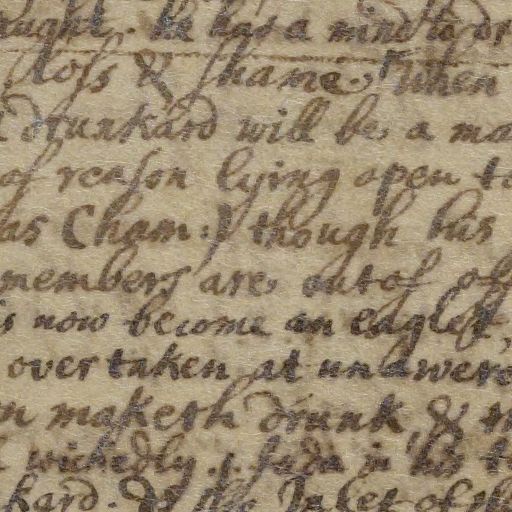 he has a mind to dr
loss & shame. when
drunkard will be a ma
of reason lying open to
as Cham:) though his
members are out of of
is now become an eaglet,
overtaken at unawere
maketh drunk, & th
wickedly . in his
kard. of the